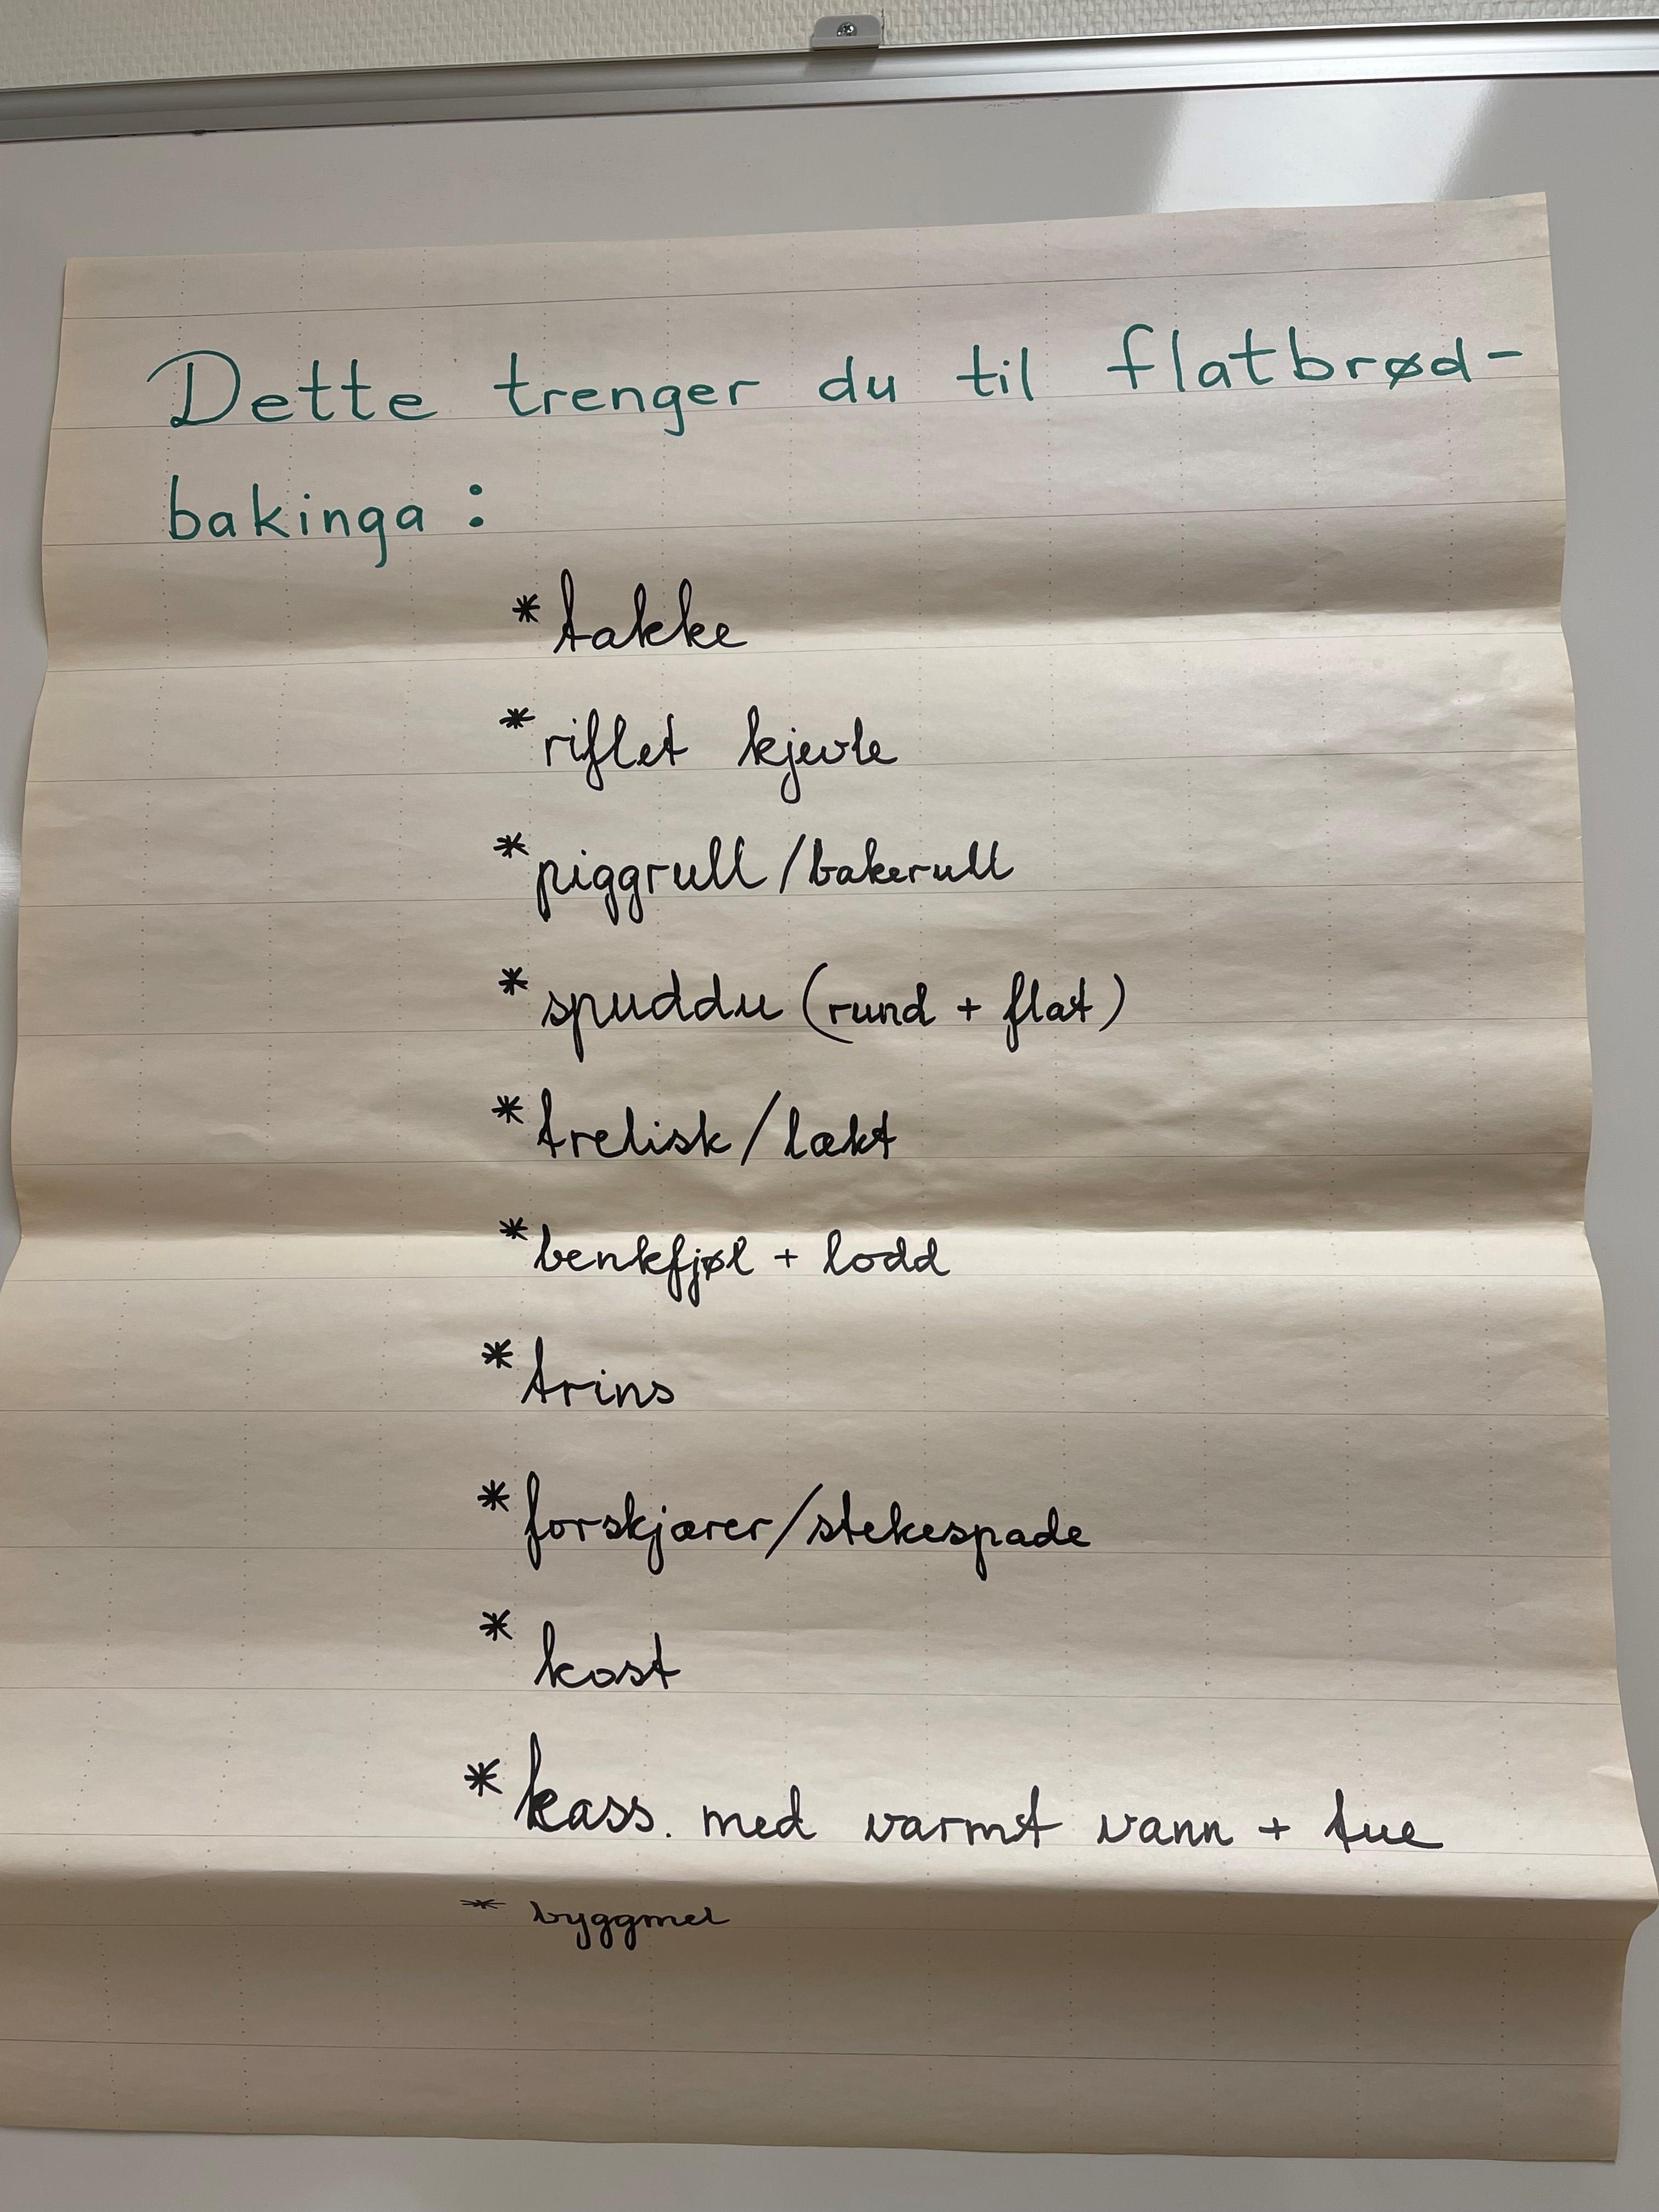 Dette trenger du til flatbrød-
bakinga:
* takke
* riflet kjevle
* piggrull/bakerull
* spuddu (rund + flat)
* trelisk/lækt
* benkfjøl + lodd
* trins
* forskjærer/stekespade
* kost
* kass. med varmt vann + tue
* byggmel